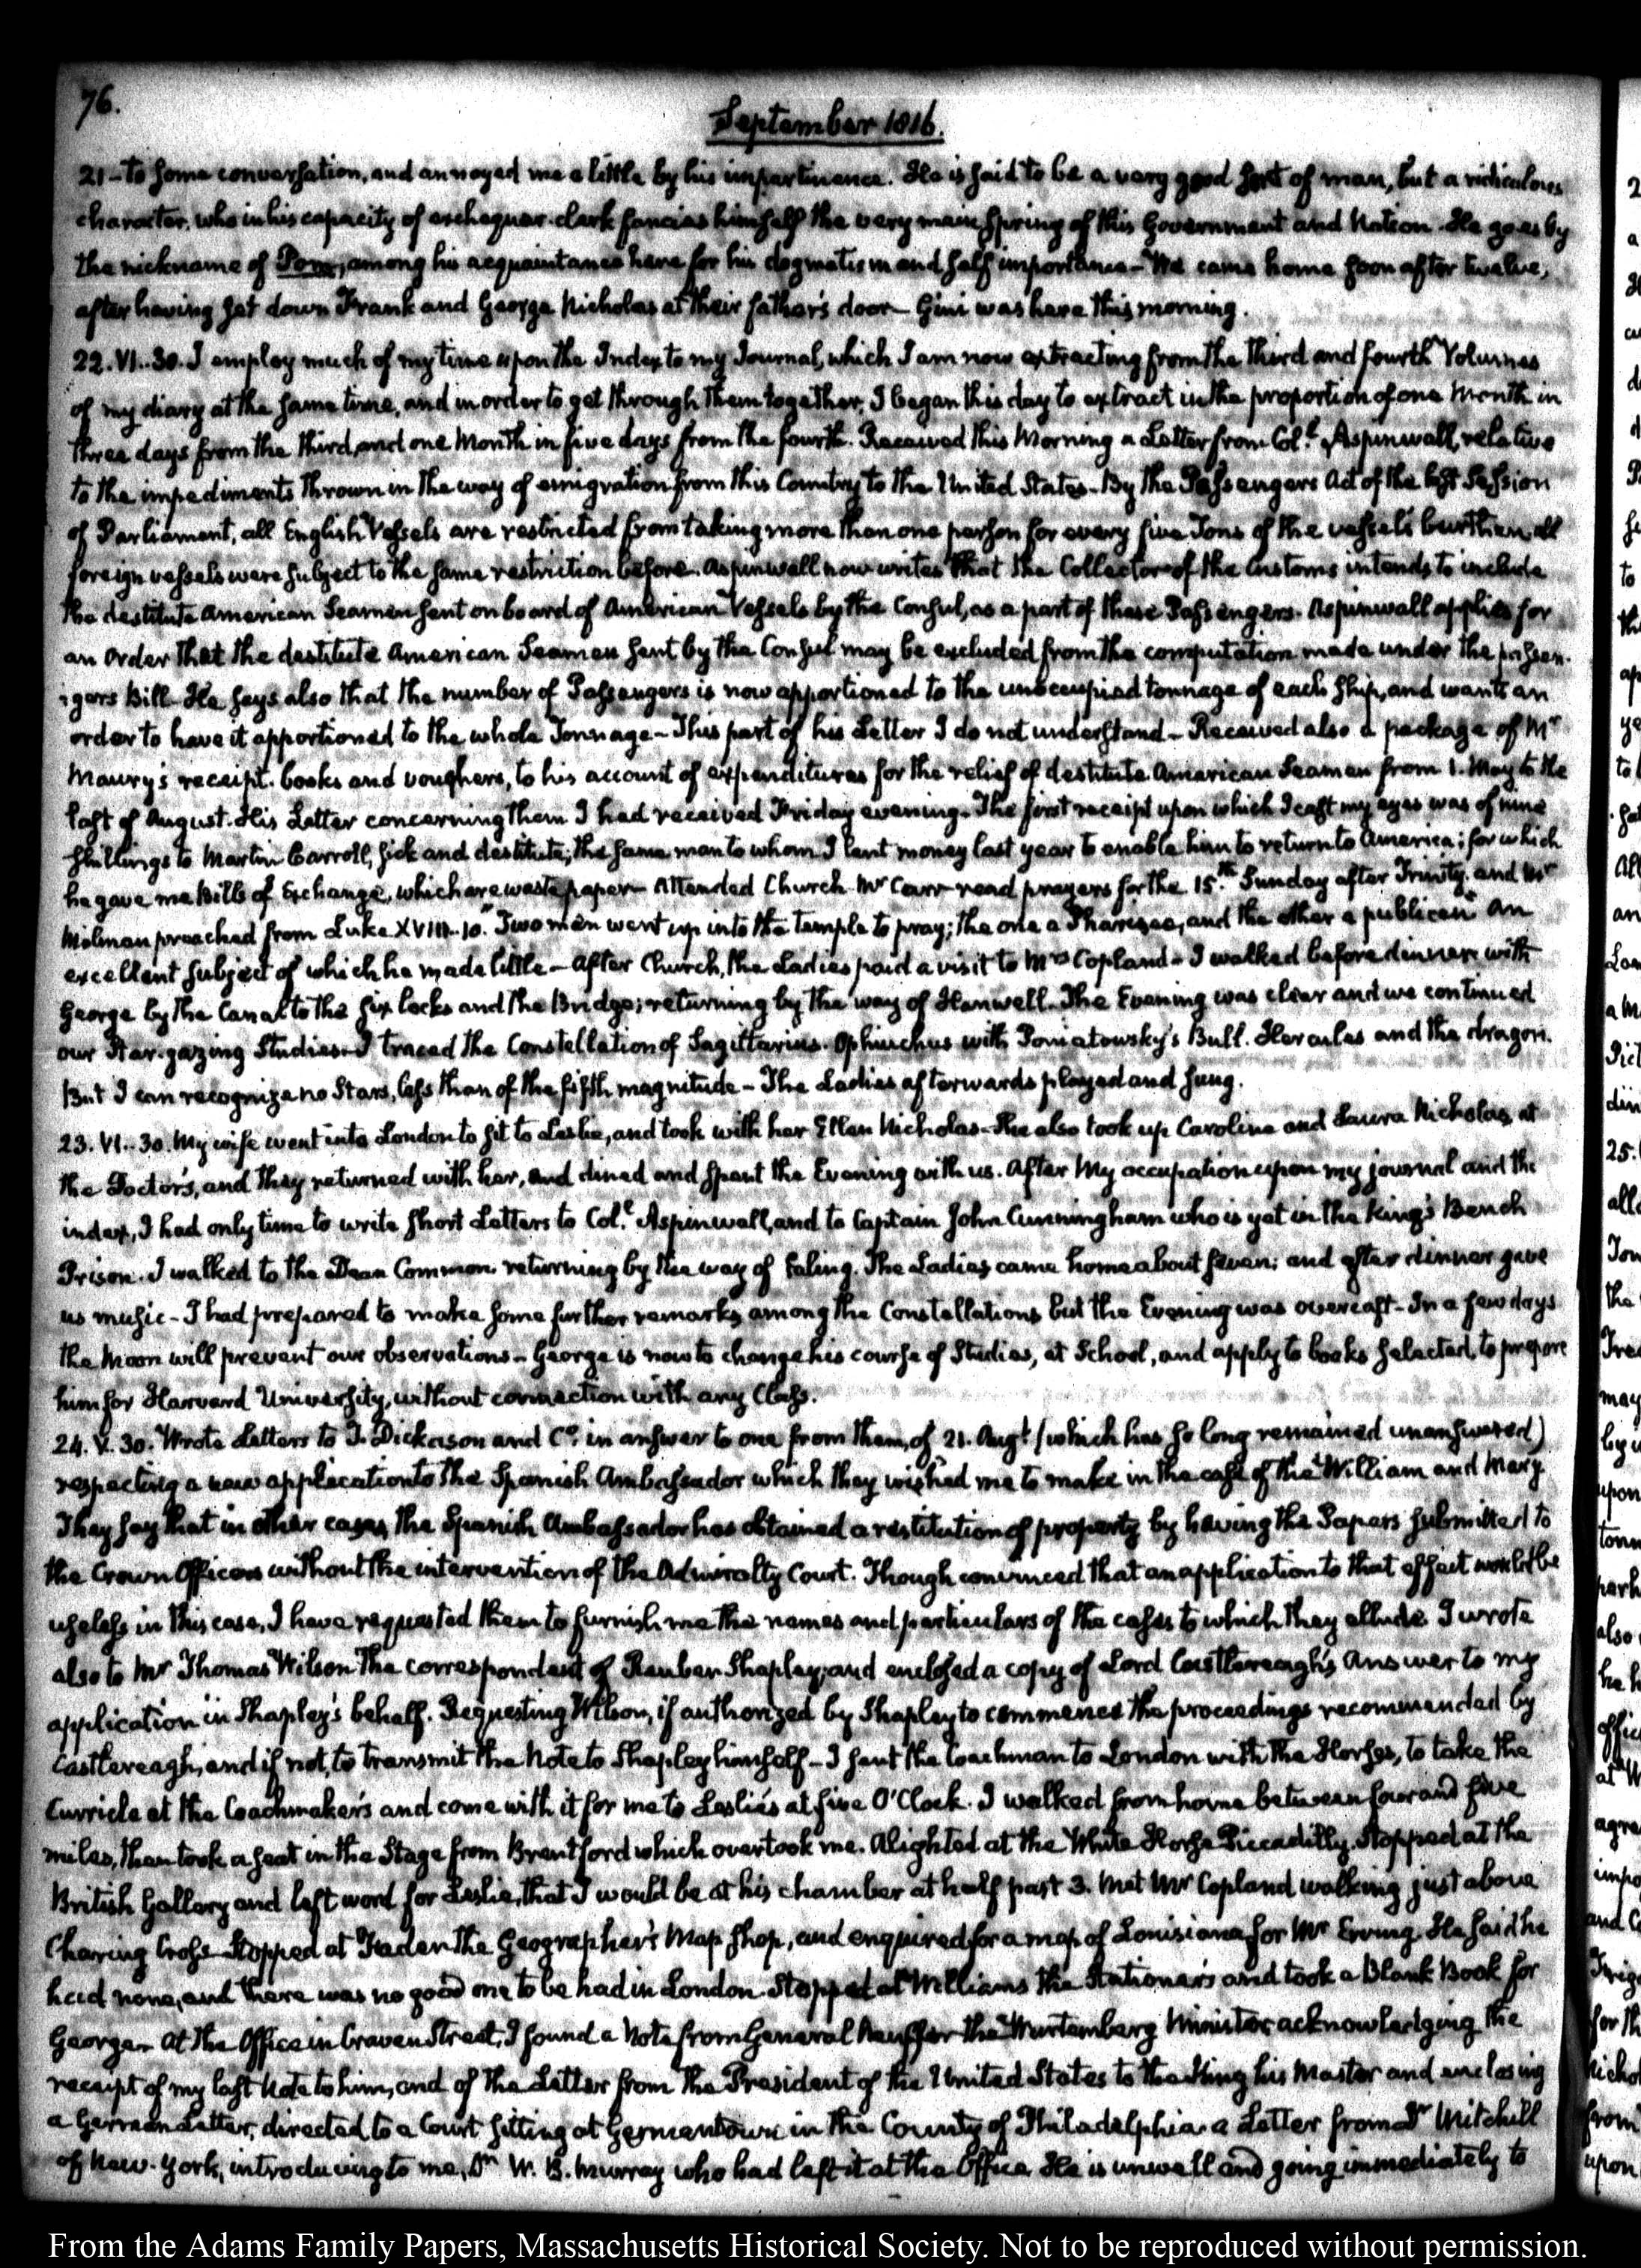 76.
September 1816.
21 - to some conversation, and annoyed me a little by his impertinence. He is said to be a very good sort of man, but a ridiculous
character, who in his capacity of exchequer-clerk fancies himself the very main spring of this Government and Nation. He goes by
the nickname of among his acquaintance here for his dogmatism and self importance - We came home soon after twelve,
after having set down Frank and George Nicholas at their father's door - Gini was here this morning.
22. VI..30. I employ much of my time upon the Index to my Journal, which I am now extracting from the third and fourth Volumes
of my diary at the same time, and in order to get through them together, I began this day to extract in the proportion of one Month in
three days from the third, and one Month in five days from the fourth. Received this Morning a Letter from Col.l Aspinwall, relative
to the impediments thrown in the way of emigration from this Country to the United States - By the Passengers Act of the last Session
of Parliament, all English Vessels are restricted from taking more than one person for every five Tons of the vessel's burthen, all
foreign vessels were subject to the same restriction before. Aspinwall now writes that the Collector of the Customs intends to include
the destitute American Seamen sent on board of American Vessels by the Consul, as a part of these Passengers. Aspinwall applies for
an Order that the destitute American Seamen sent by the Consul may be excluded from the computation made under the passen-
-gers Bill - He says also that the number of Passengers is now apportioned to the unoccupied tonnage of each ship, and wants an
order to have it apportioned to the whole Tonnage - This part of his Letter I do not understand - Received also a package of Mr
Maury's receipt-books and vouchers, to his account of expenditures for the relief of destitute American Seamen from 1. May to the
last of August. His Letter concerning them I had received Friday evening. The first receipt upon which I cast my eyes was of nine
shillings to Martin Carroll, sick and destitute; the same man to whom I lent money last year to enable him to return to America; for which
he gave me Bills of Exchange, which are waste paper - Attended Church. Mr Carr read prayers for the 15.th Sunday after Trinity. and Mr
Milman preached from Luke XVIII. 10. "Two men went up into the temple to pray; the one a Pharisee, and the other a publican" An
excellent subject of which he made little - After Church, the Ladies paid a visit to Mrs Copland - I walked before dinner with
George by the Canal to the six locks and the Bridge; returning by the way of Hanwell. The Evening was clear and we continued
our Star-gazing Studies - I traced the Constellation of Sagittarius. Ophiuchus with Poniatowsky's Bull. Hercules and the dragon.
But I can recognize no Stars, less than of the fifth magnitude - The Ladies afterwards played and sung.
23. VI..30. My wife went into London to sit to Leslie, and took with her Ellen Nicholas - She also took up Caroline and Laura Nicholas, at
the Doctor's, and they returned with her, and dined and spent the Evening with us. After my occupation upon my journal and the
index, I had only time to write short Letters to Col.l Aspinwall, and to Captain John Cunningham who is yet in the King's Bench
Prison. I walked to the Dean Common, returning by the way of Ealing. The Ladies came home about seven; and after dinner gave
us music - I had prepared to make some further remarks among the Constellations but the Evening was overcast - In a few days
the Moon will prevent our observations - George is now to change his course of Studies, at School, and apply to books selected, to prepare
him for Harvard University, without connection with any Class.
24. V. 30. Wrote Letters to J. Dickason and Co. in answer to one from them, of 21. Augt. (which has so long remained unanswered)
respecting a new application to the Spanish Ambassador which they wished me to make in the case of the William and Mary
They say that in other cases, the Spanish Ambassador has obtained a restitution of property by having the Papers submitted to
the Crown Officers without the intervention of the Admiralty Court. Though convinced that an application to that effect would be
useless in this case, I have requested them to furnish me the names and particulars of the cases to which they allude. I wrote
also to Mr Thomas Wilson the correspondent of Reuben Shapley; and enclosed a copy of Lord Castlereagh's Answer to my
application in Shapley's behalf. Requesting Wilson, if authorized by Shapley to commence the proceedings recommended by
Castlereagh, and if not, to transmit the Note to Shapley himself - I sent the Coachman to London with the Horses, to take the
Curricle at the Coachmaker's and come with it for me to Leslie's at five O'Clock. I walked from home between four and five
miles, then took a seat in the Stage from Brentford which overtook me. Alighted at the White Horse Piccadilly. Stopped at the
British Gallery and left word for Leslie, that I would be at his chamber at half past 3. Met Mr Copland walking just above
Charing Cross - Stopped at Faden the Geographer's Map shop, and enquired for a map of Louisiana for Mr Erving. He said he
had none, and there was no good one to be had in London - Stopped at Williams the Stationer's and took a Blank Book for
George - At the Office in Craven Street, I found a Note from General the Wurtemberg Minister acknowledging the
receipt of my last Note to him, and of the Letter from the President of the United States to the King his Master and enclosing
a German Letter, directed to a Court sitting at Germantown in the County of Philadelphia. a Letter from Dr Mitchill
of New-York, introducing to me, Dr W. B. Murray who had left it at the Office. He is unwell and going immediately to
From the Adams Family Papers, Massachusetts Historical Society. Not to be reproduced without permission.